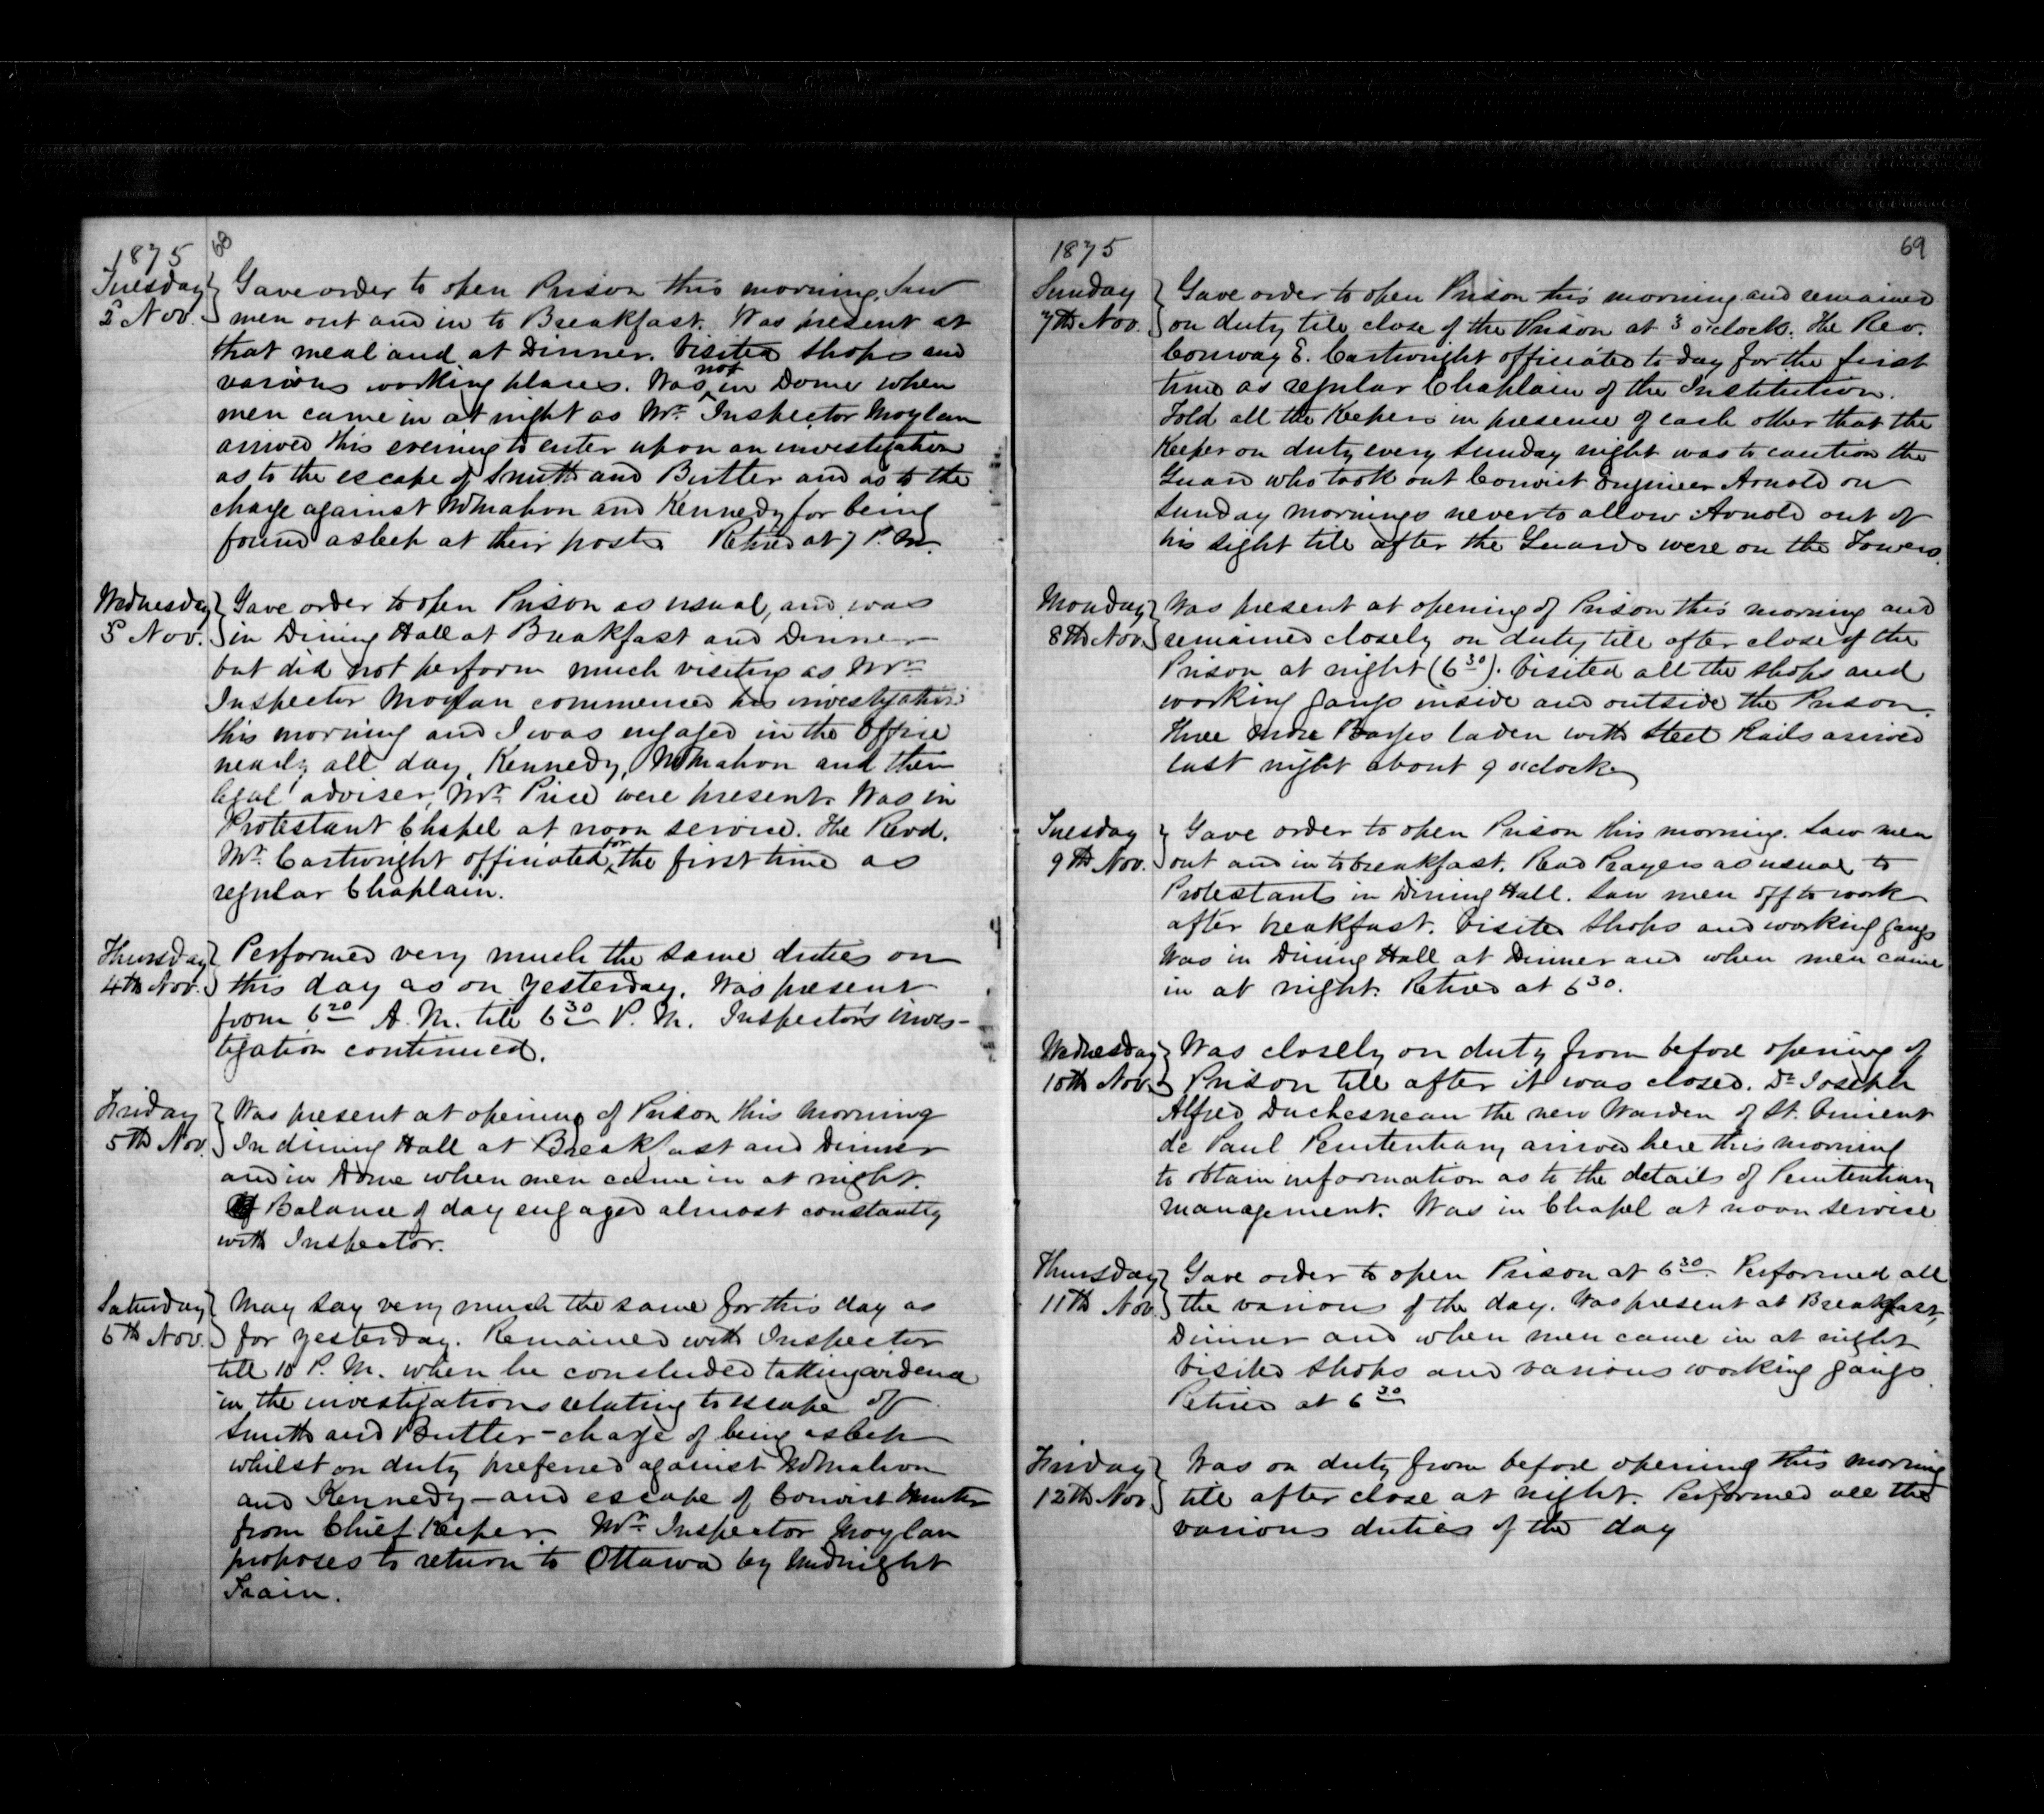 68
1875
Tuesday
2 Nov.
Gave order to open Prison this morning. Saw
men out and in to Breakfast. Was present at
that meal and at Dinner. Visited shops and
various working places. Was not in Dome when
men came in at night as Mr. Inspector Moylan
arrived this evening to enter upon an investigation
as to the escape of Smith and Butler and as to the
charge against McMahon and Kennedy for being
found asleep at their posts Retired at 7 P.M.
Wednesday
3 Nov.
Gave order to open Prison as usual, and was
in Dining Hall at Breakfast and Dinner
but did not perform much visiting as Mr.
Inspector Moylan commenced his investigation
this morning and I was engaged in the Office
nearly all day. Kennedy, McMahon and their
legal adviser, Mr. Price were present. Was in
Protestant Chapel at noon service. The Revd.
Mr. Cartwright officiated for the first time as
regular Chaplain.
Thursday
4th Nov.
Performed very much the same duties on
this day as on yesterday. Was present
from 6 20 A.M. till 6 30 P.M. Inspector's inves-
tigation continued.
Friday
5th Nov.
Was present at opening of Prison this morning
In dining Hall at Breakfast and Dinner
and in Dome when men came in at night.
Balance of day engaged almost constantly
with Inspector.
Saturday
6th Nov.
May say very much the same for this day as
for yesterday. Remained with Inspector
till 10 P.M. when he concluded taking evidence
in the investigations relating to escape of
Smith and Butler - charge of being asleep
whilst on duty preferred against McMahon
and Kennedy - and escape of Convict Hunter
from Chief Keeper. Mr. Inspector Moylan
proposes to return to Ottawa by Midnight
Train.
1875
69
Sunday
7th Nov.
Gave order to open Prison this morning and remained
on duty till close of the Prison at 3 o'clock. The Rev.
Conway E. Cartwright officiated to day for the first
time as regular Chaplain of the Institution.
Told all the Keepers in presence of each other that the
Keeper on duty every Sunday night was to caution the
Guard who took out Convict Engineer Arnold on
Sunday mornings never to allow Arnold out of
his sight till after the Guards were on the Towers.
Monday
8th Nov.
Was present at opening of Prison this morning and
remained closely on duty till after close of the
Prison at night (6 30). Visited all the shops and
working gangs inside and outside the Prison.
Three more Barges laden with Steel Rails arrived
last night about 9 o'clock
Tuesday
9th Nov.
Gave order to open Prison this morning. Saw men
out and in to breakfast. Read Prayers as usual to
Protestants in Dining Hall. Saw men off to work
after breakfast. Visited shops and working gangs
Was in Dining Hall at Dinner and when men came
in at night. Retired at 6 30.
Wednesday
10th Nov.
Was closely on duty from before opening of
Prison till after it was closed. Dr. Joseph
Alfred Duchesneau the new Warden of St. Vincent
de Paul Penitentiary arrived here this morning
to obtain information as to the details of Penitentiary
management. Was in Chapel at noon service
Thursday
11th Nov.
Gave order to open Prison at 6 30. Performed all
the various of the day. Was present at Breakfast,
Dinner and when men came in at night
Visited shops and various working gangs.
Retired at 6 30
Friday
12th Nov.
Was on duty from before opening this morning
till after close at night. Performed all the
various duties of the day